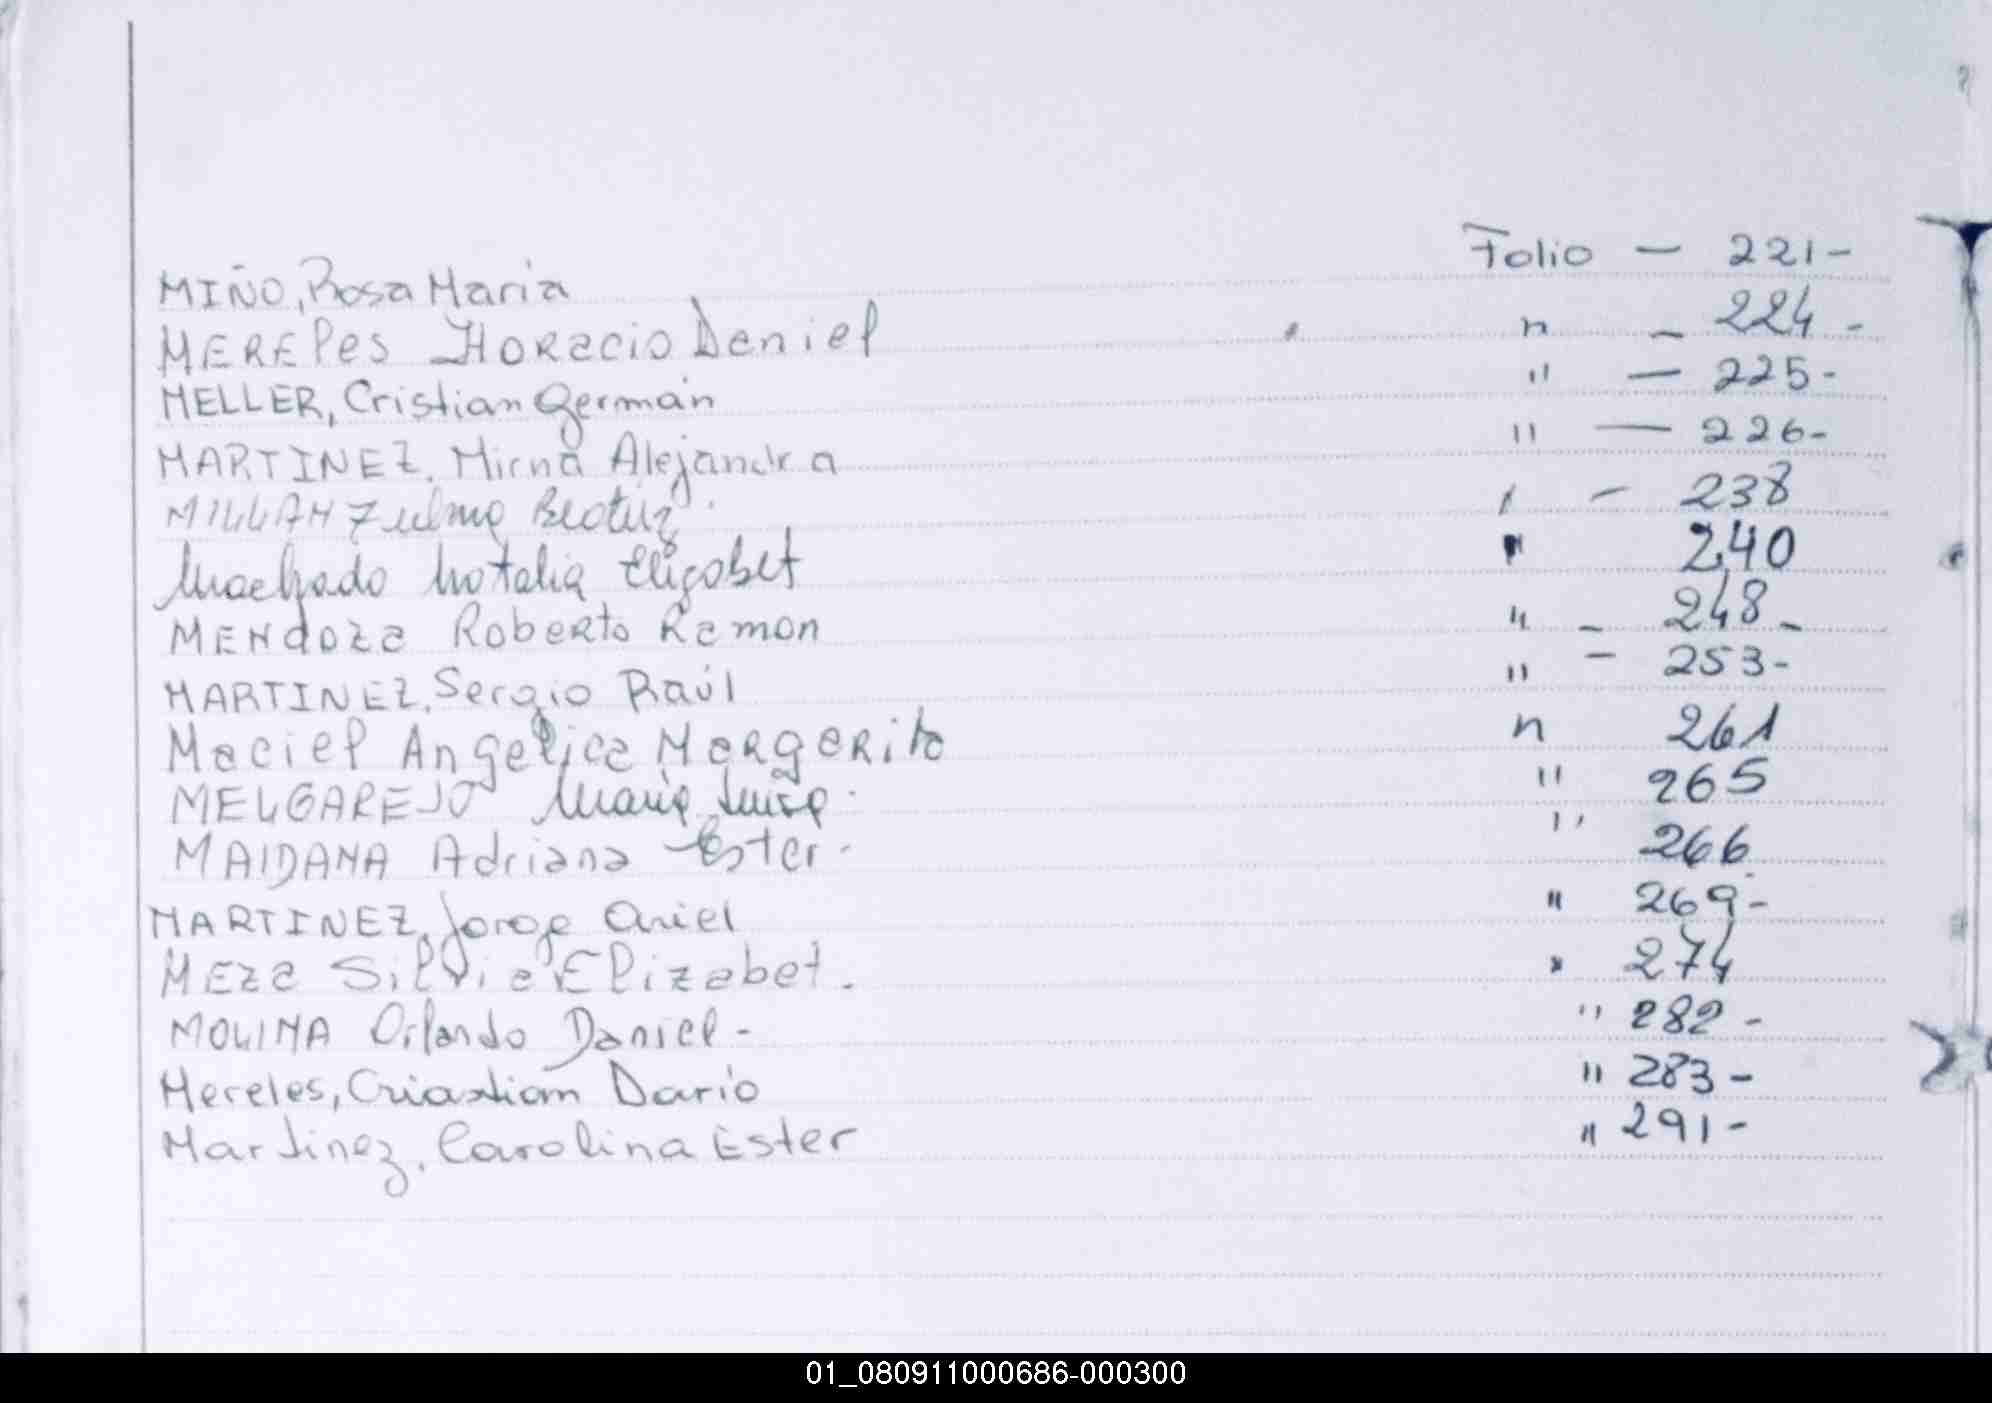 MIÑO, Rosa Maria Folio — 221-
MERELes Horacio Daniel " - 224 -
MELLER, Cristian Germán " — 225-
MARTINEZ, Mirna Alejandra " — 226-
MILLAN Zulma Beatriz. " - 238
Machado Natalia Elizabet " 240
MENdoza Roberto Ramon " - 248 -
MARTINEZ, Sergio Raúl " - 253-
Maciel Angelica Margarita " 261
MELGAREJO Maria Luisa. " 265
MAIDANA Adriana Ester. " 266
MARTINEZ, Jorge Ariel " 269-
Meza Silvia Elizabet. " 274
MOLINA Orlando Daniel - " 282 -
Mereles, Criastian Dario " 283 -
Martinez, Carolina Ester " 291 -
01_080911000686-000300